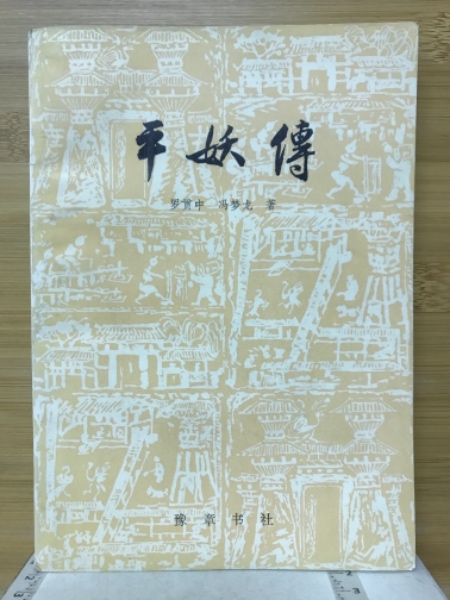 平妖傳
罗贯中 冯梦龙 著
豫章书社